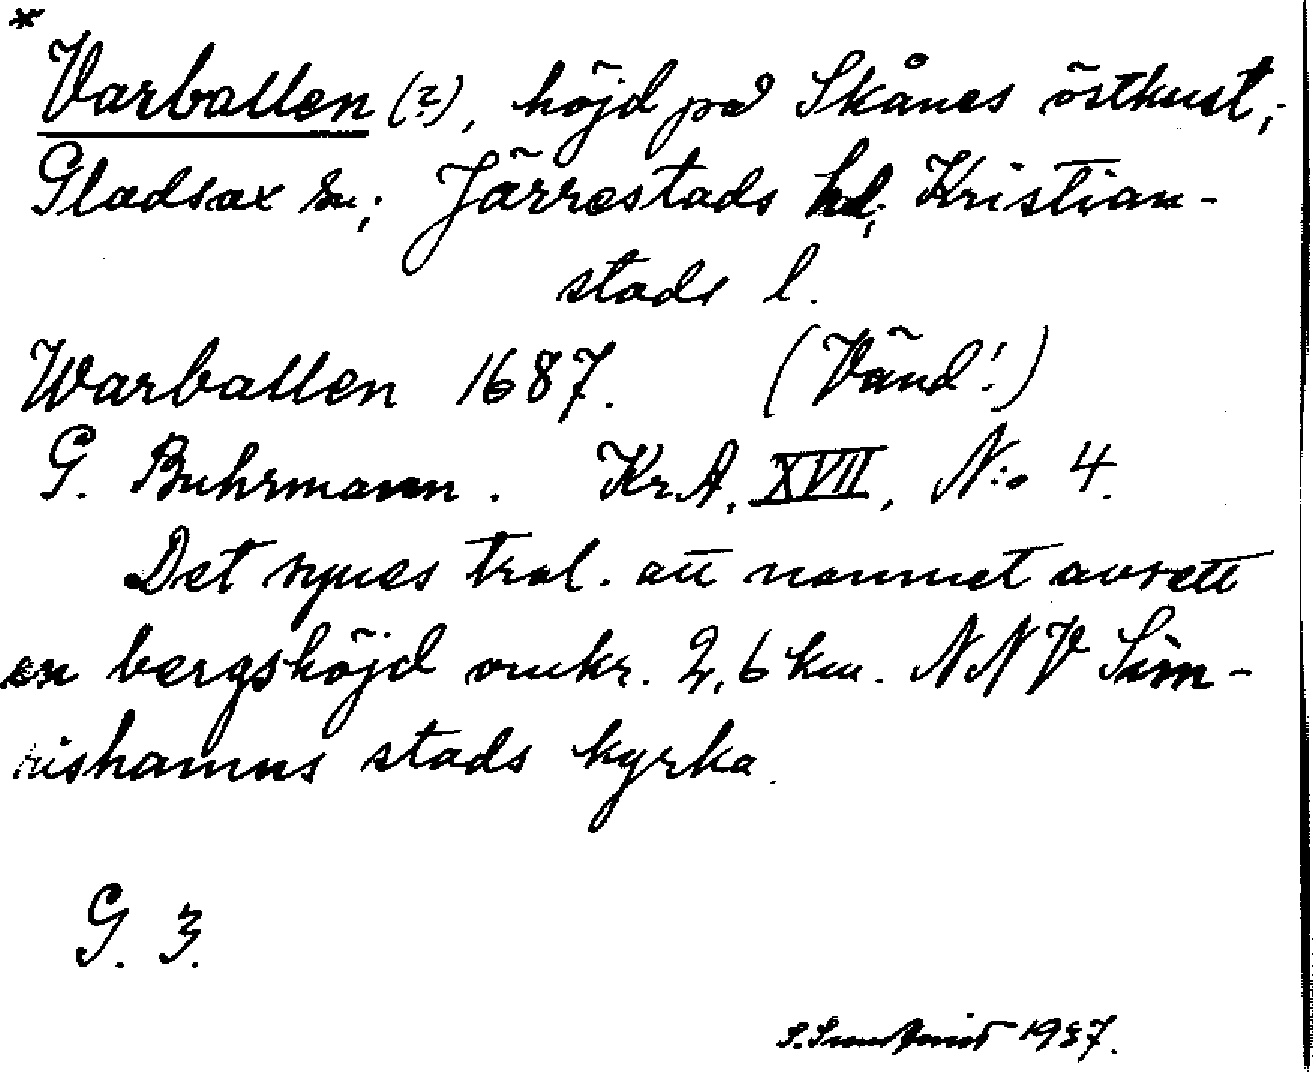 *
Varballen (?), höjd på Skånes östkust;
Gladsax sn; Järrestads hd; Kristian-
stads l.
Warballen 1687. (Vänd!)
G. Buhrmann. Kr.A. XVII, N:o 4.
Det synes trol. att namnet avsett
en bergshöjd omkr. 2,6 km. NNV Sim-
rishamns stads kyrka.
G. 3.
1937.